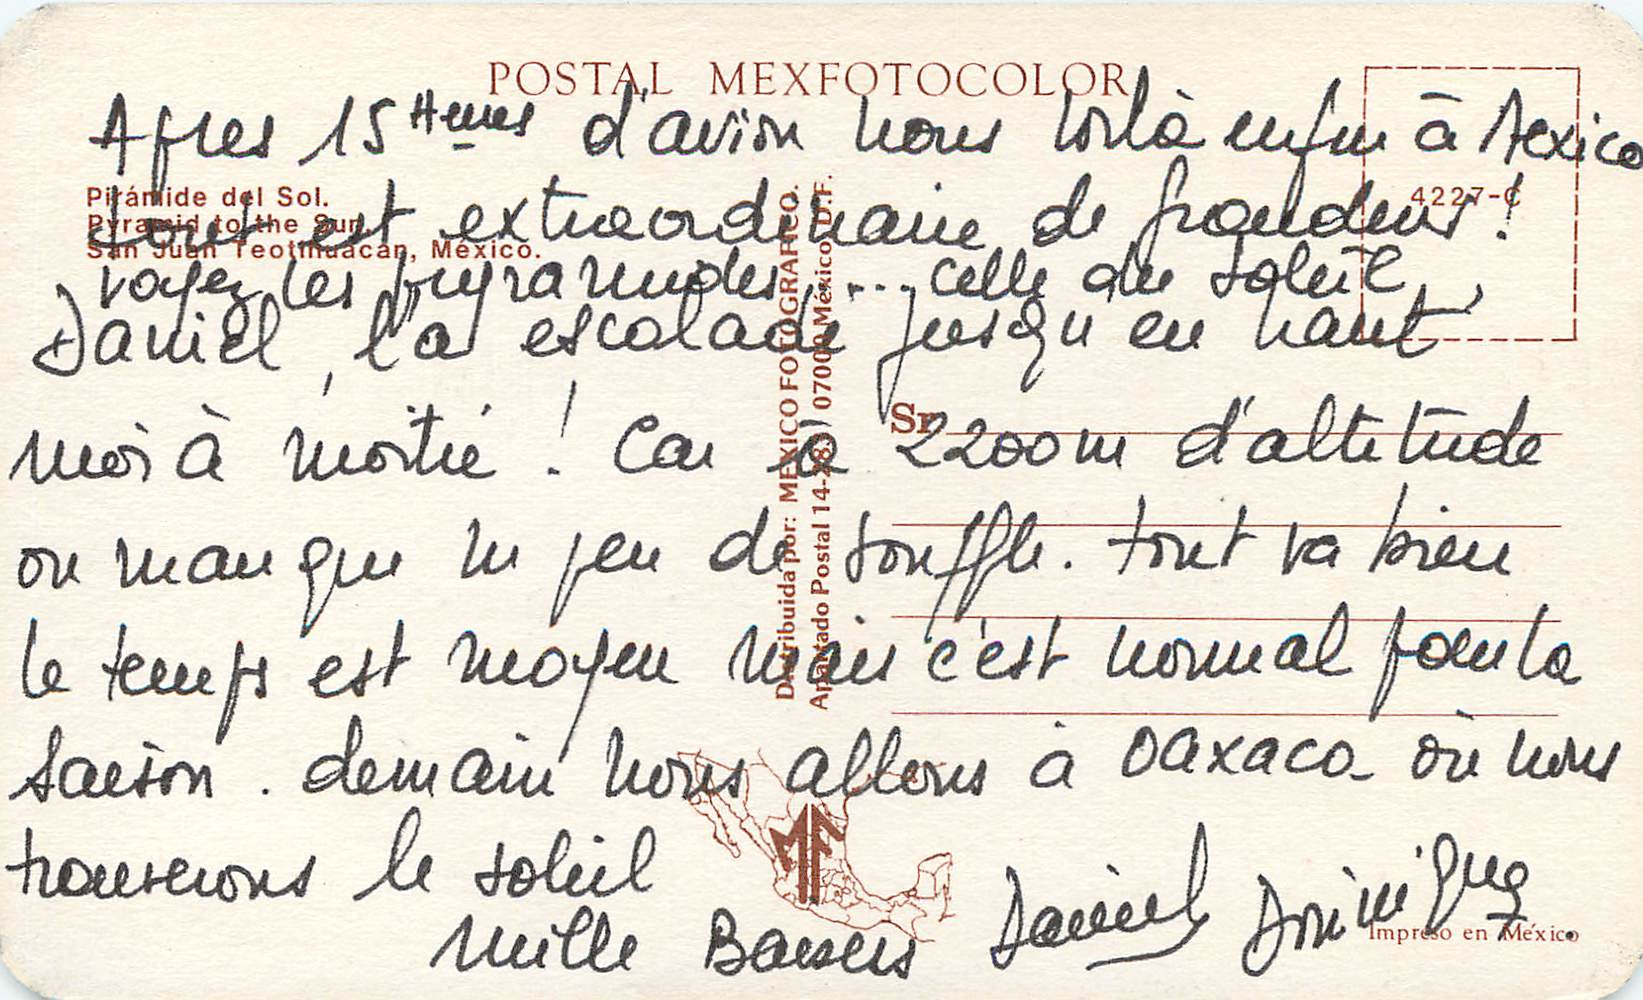 POSTAL MEXFOTOCOLOR
Apres 15 Heures d'avion nous voilà enfin à Mexico
4227-C
Pirámide del Sol.
Pyramid to the Sun
San Juan Teotihuacán, México.
tout est extraordinaire de grandeur !
voyez les pyramides, .... celle du soleil,
Daniel l'a escaladé jusqu'en haut
moi à moitié ! Car à 2200 m d'altitude
Sr.
on manque un peu de souffle. tout va bien
le temps est moyen mais c'est normal pour la
saison. demain nous allons à Oaxaca où nous
trouverons le soleil
Mille Baisers Daniel Dominique
Distribuida por: MEXICO FOTOGRAFICO.
Apartado Postal 14-281 07000 México D.F.
MF
Impreso en México